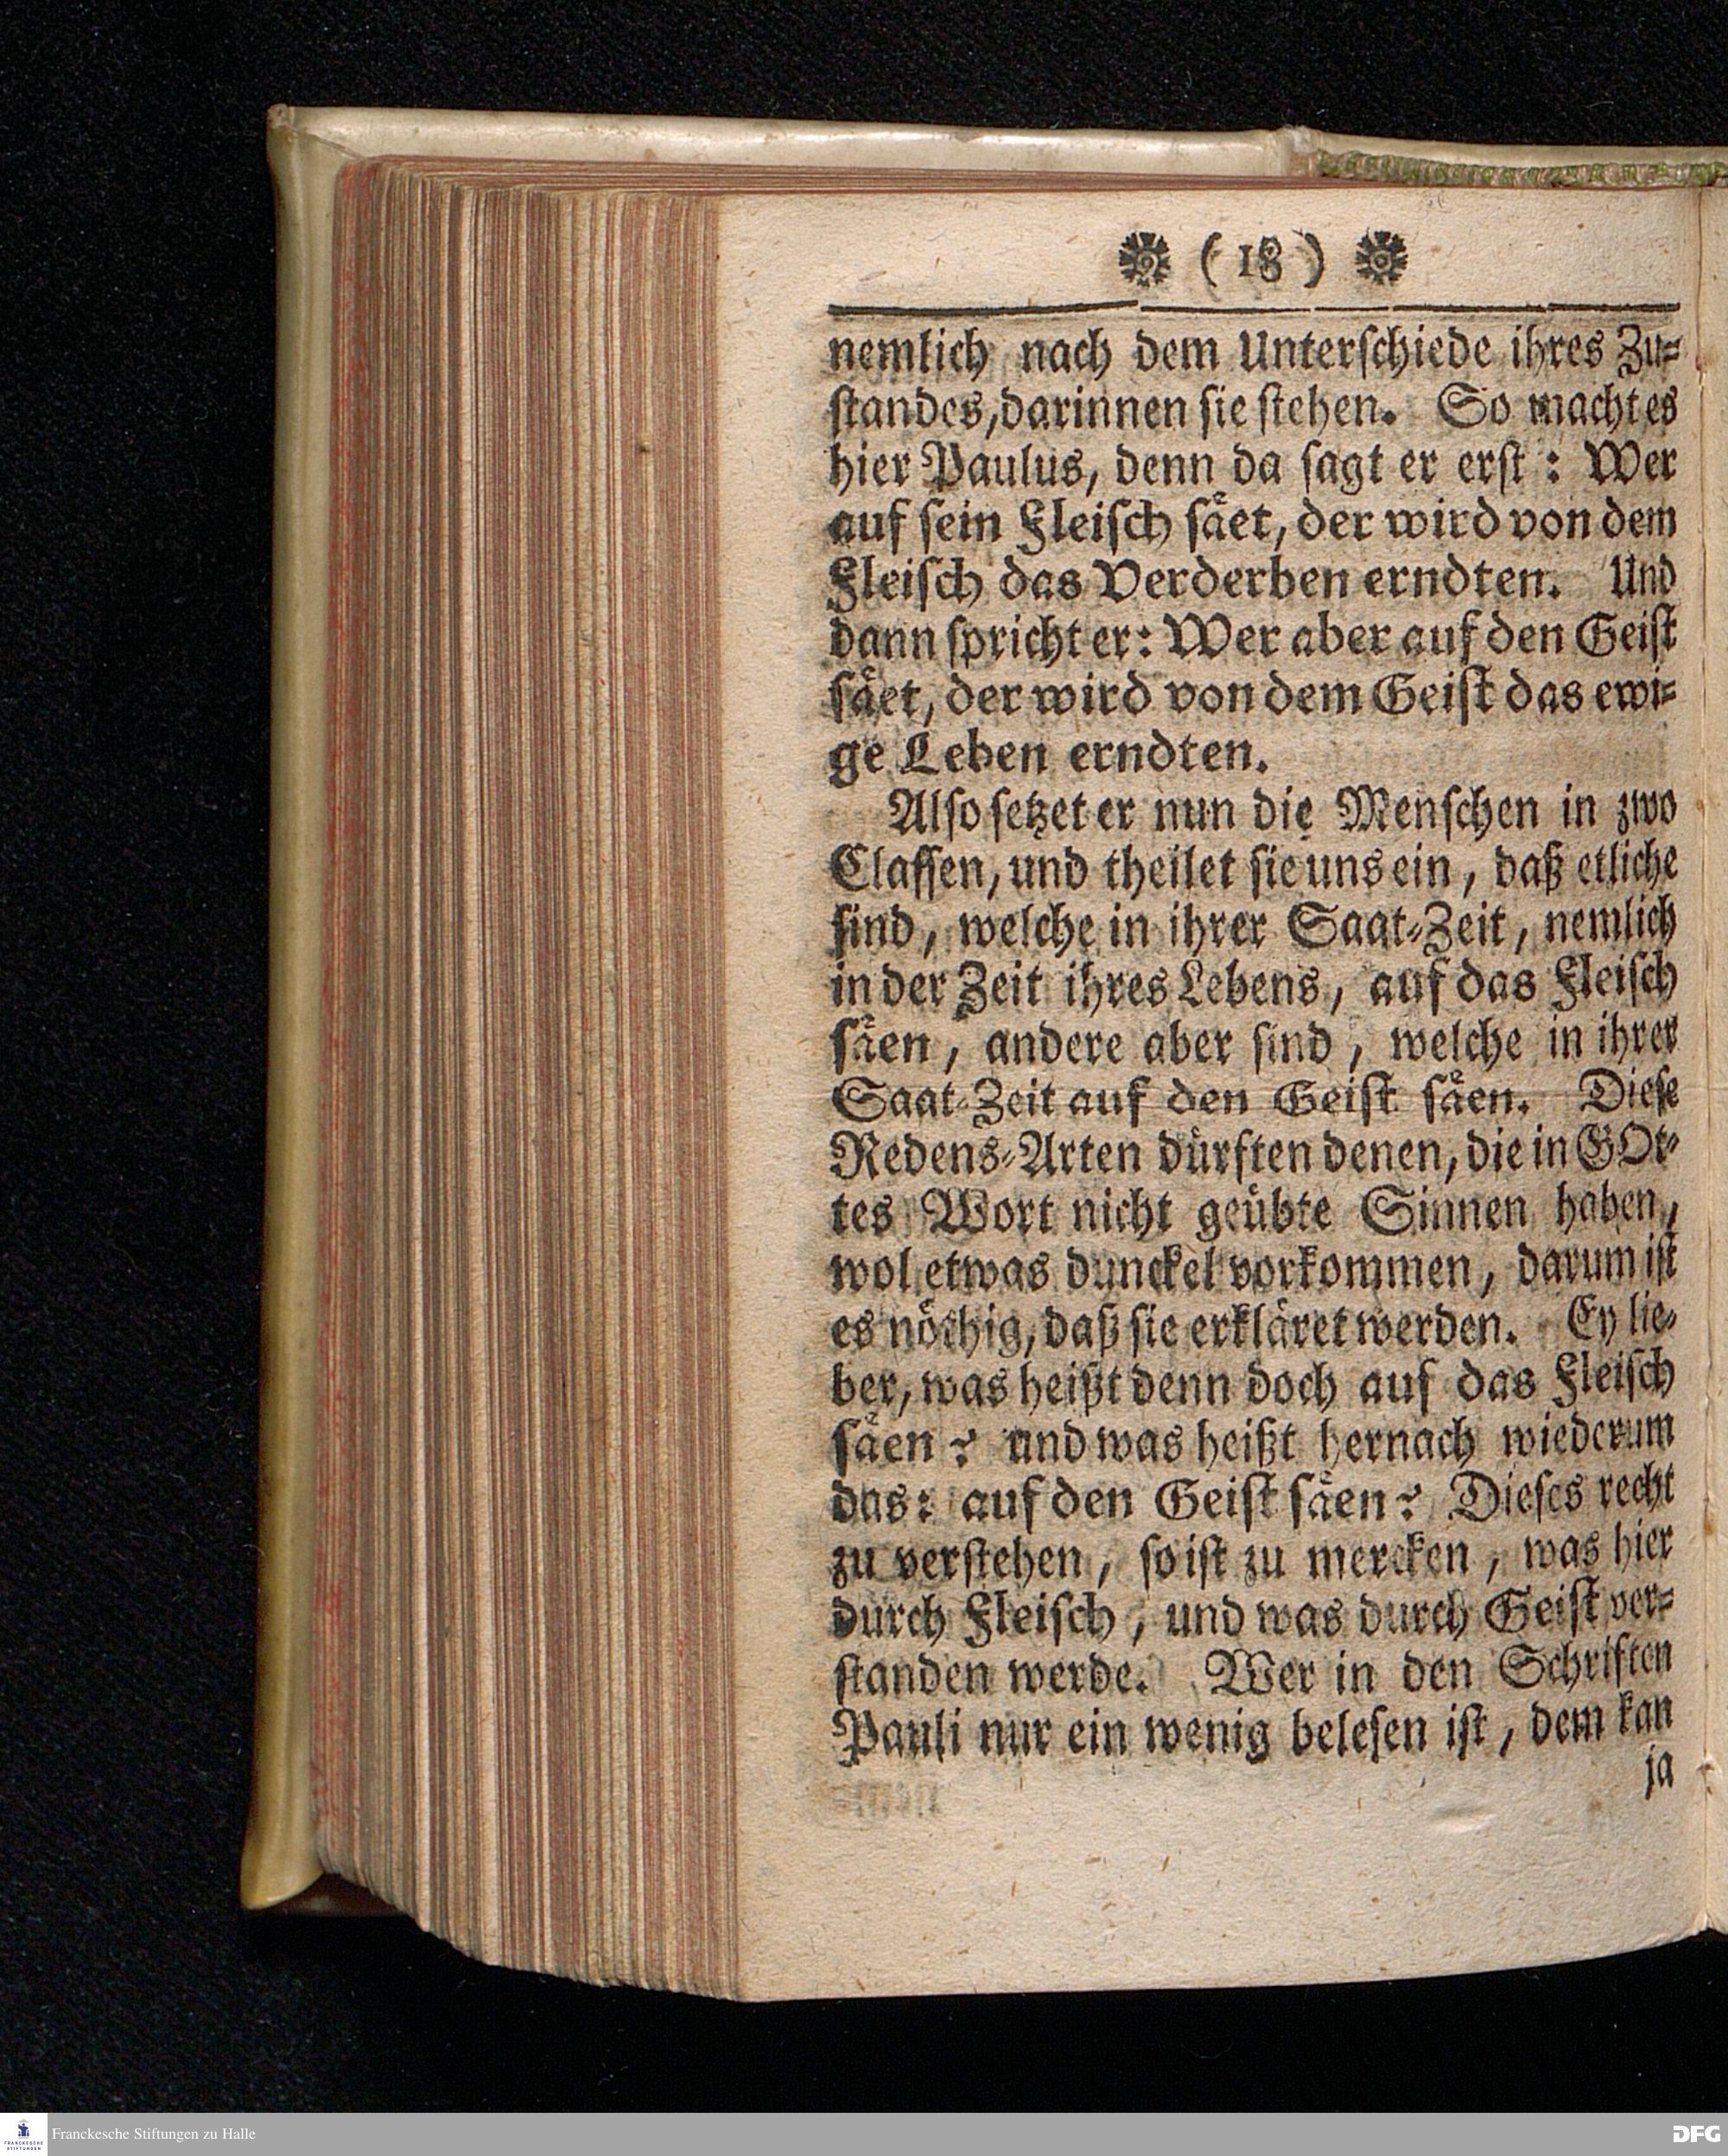 ( 18 )
nemlich nach dem Unterſchiede ihres Zu-
ſtandes, darinnen ſie ſtehen. So macht es
hier Paulus, denn da ſagt er erſt: Wer
auf ſein Fleiſch ſaͤet, der wird von dem
Fleiſch das Verderben erndten. Und
dann ſpricht er: Wer aber auf den Geiſt
ſaͤet, der wird von dem Geiſt das ewi-
ge Leben erndten.
Alſo ſetzet er nun die Menſchen in zwo
Claſſen, und theilet ſie uns ein, daß etliche
ſind, welche in ihrer Saat-Zeit, nemlich
in der Zeit ihres Lebens, auf das Fleiſch
ſaͤen, andere aber ſind, welche in ihrer
Saat-Zeit auf den Geiſt ſaͤen. Dieſe
Redens-Arten duͤrften denen, die in GOt-
tes Wort nicht geuͤbte Sinnen haben,
wol etwas dunckel vorkommen, darum iſt
es noͤthig, daß ſie erklaͤret werden. Ey lie-
ber, was heißt denn doch auf das Fleiſch
ſaͤen? und was heißt hernach wiederum
das: auf den Geiſt ſaͤen? Dieſes recht
zu verſtehen, ſo iſt zu mercken, was hier
durch Fleiſch, und was durch Geiſt ver-
ſtanden werde. Wer in den Schriften
Pauli nur ein wenig beleſen iſt, dem kan
ja
Franckesche Stiftungen zu Halle
FRANCKESCHE
STIFTUNGEN
DFG